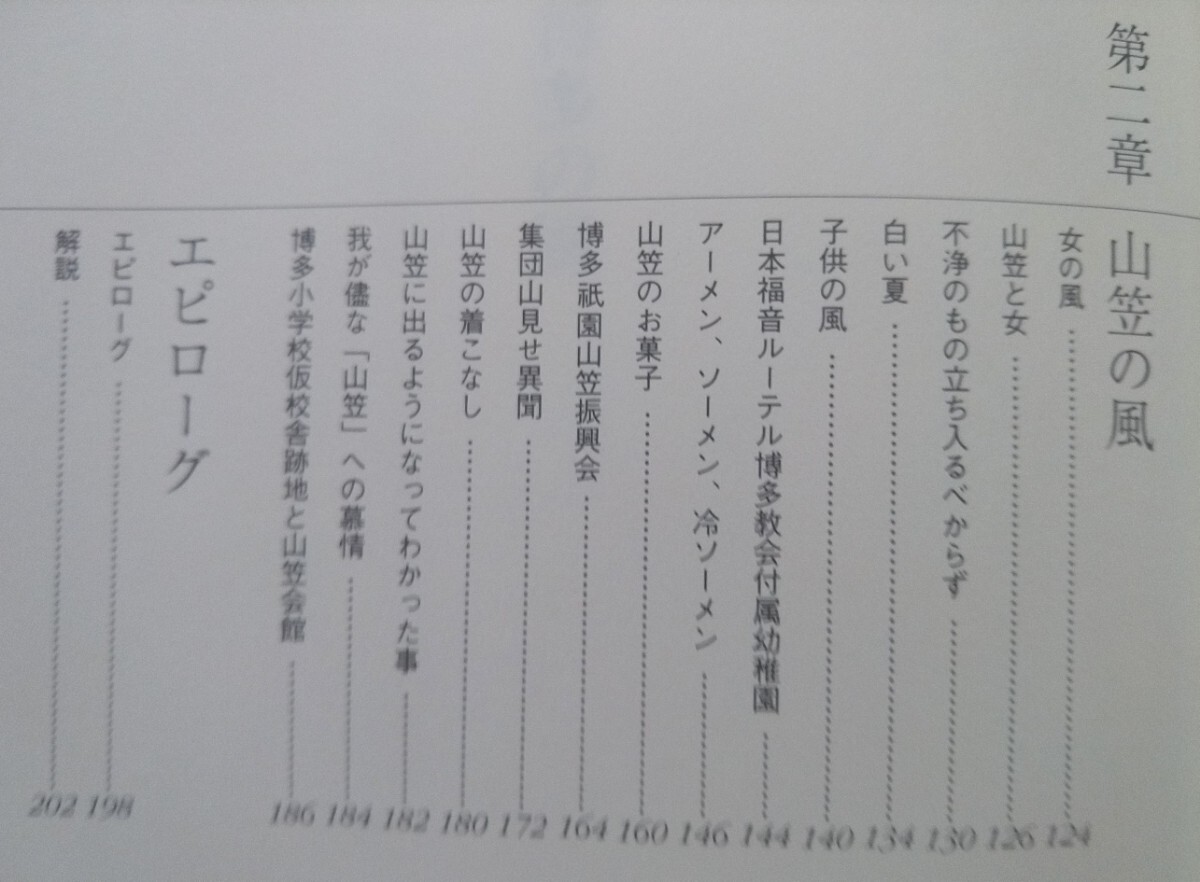 第二章 山笠の風
女の風 124
山笠と女 126
不浄のもの立ち入るべからず 130
白い夏 134
子供の風 140
日本福音ルーテル博多教会付属幼稚園 144
アーメン、ソーメン、冷ソーメン 146
山笠のお菓子 160
博多祇園山笠振興会 164
集団山見せ異聞 172
山笠の着こなし 180
山笠に出るようになってわかった事 182
我が儘な「山笠」への慕情 184
博多小学校仮校舎跡地と山笠会館 186
エピローグ
エピローグ 198
解説 202